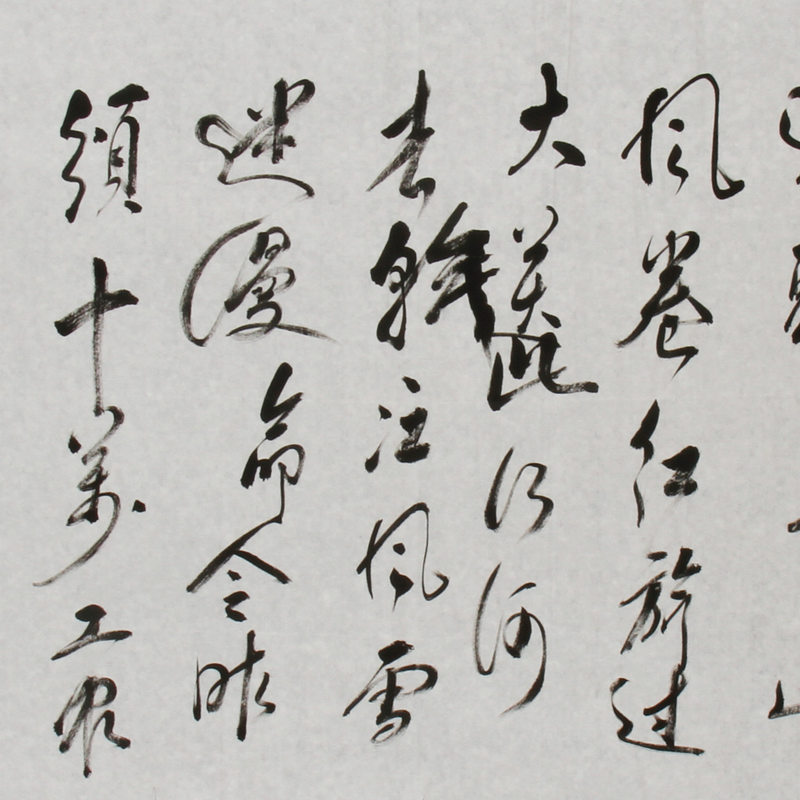 風卷红旗过
大关此行何
去赣江風雪
迷漫命令昨
頒十萬工农